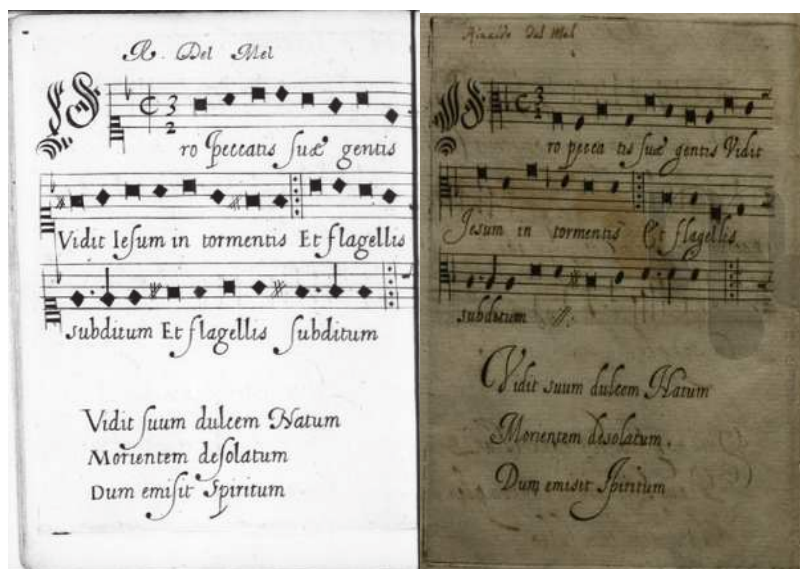 R. Del Mel
Pro peccatis suæ gentis
Vidit Iesum in tormentis Et flagellis
subditum Et flagellis subditum
Vidit suum dulcem Natum
Morientem desolatum
Dum emisit Spiritum
Rinaldo del Mel
Pro pecca tis suæ gentis Vidit
Jesum in tormentis Et flagellis
subditum
Vidit suum dulcem Natum
Morientem desolatum.
Dum emisit Spiritum